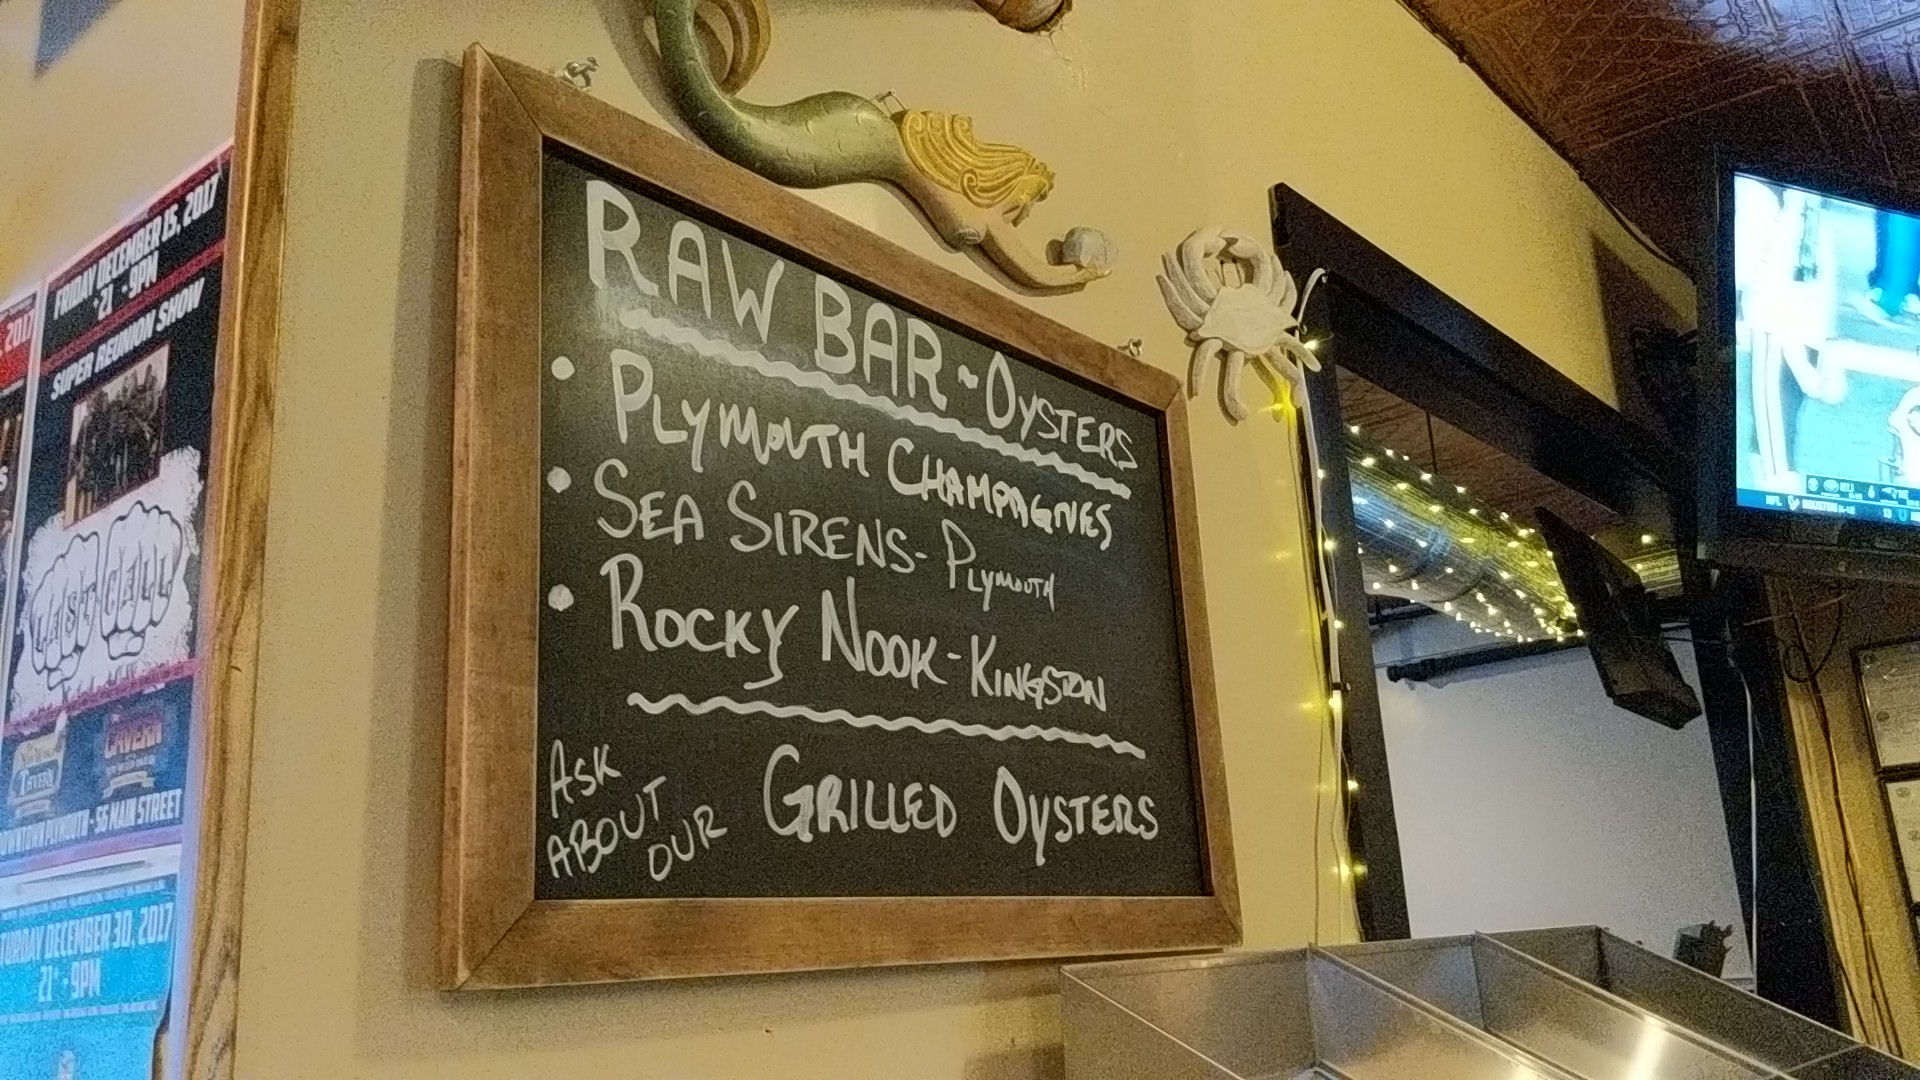 RAW BAR ~ OYSTERS
• PLYMOUTH CHAMPAGNES
• SEA SIRENS - PLYMOUTH
• ROCKY NOOK - KINGSTON
ASK
ABOUT
OUR
GRILLED OYSTERS
FRIDAY DECEMBER 15, 2017
21+ - 9PM
SUPER REUNION SHOW
LAST CALL
TAVERN
CAVERN
DOWNTOWN PLYMOUTH - 56 MAIN STREET
, 2017
TURDAY DECEMBER 30, 2017
21+ - 9PM
NFL HOUSTON
13